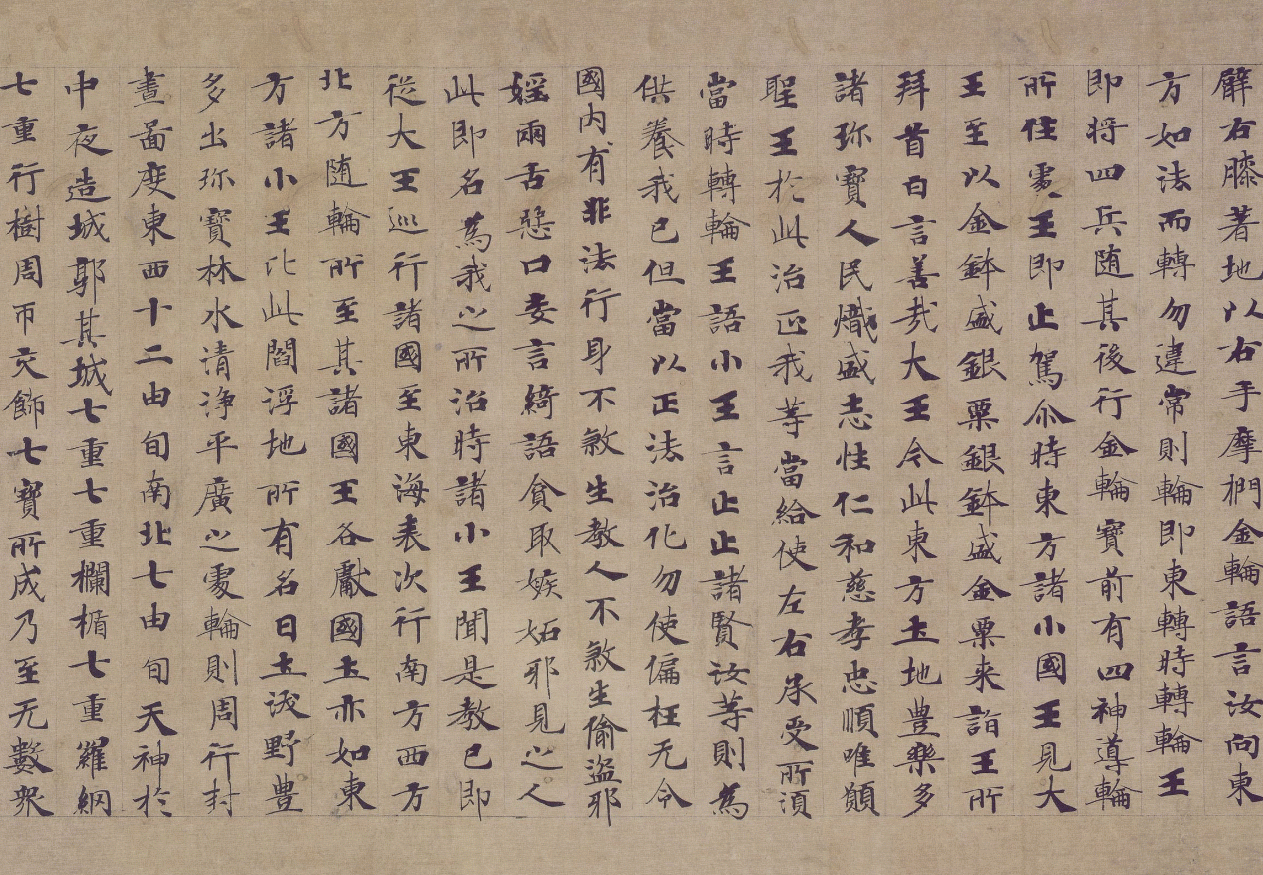 臂右膝著地以右手摩捫金輪語言汝向東
方如法而轉勿違常則輪即東轉時轉輪王
即將四兵随其後行金輪寶前有四神導輪
所住處王即止駕尒時東方諸小國王見大
王至以金鉢盛銀粟銀鉢盛金粟来詣王所
拜首白言善哉大王今此東方土地豊樂多
諸珎寶人民熾盛志性仁和慈孝忠順唯願
聖王於此治正我等當給使左右承受所須
當時轉輪王語小王言止止諸賢汝等則為
供養我已但當以正法治化勿使偏枉无令
國內有非法行身不煞生教人不煞生偷盜邪
婬兩舌惡口妄言綺語貪取嫉妬邪見之人
此即名為我之所治時諸小王聞是教已即
從大王巡行諸國至東海表次行南方西方
北方随輪所至其諸國王各獻國土亦如東
方諸小王比此閻浮地所有名曰土沃野豊
多出珎寶林水清淨平廣之處輪則周行封
畫啚度東西十二由旬南北七由旬天神於
中夜造城郭其城七重七重欄楯七重羅網
七重行樹周帀交飾七寶所成乃至无數衆